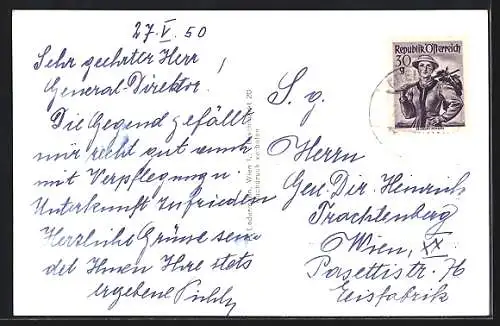 27.V.50
Sehr geehrter Herr
General-Direktor!
Die Gegend gefällt
mir recht gut auch
mit Verpflegung u.
Unterkunft zufrieden
Herzliche Grüsse sen-
det Ihnen Ihre stets
ergebene
Wien 1,
verboten
Republik Österreich
30
g
S. g.
Herrn
Gen. Dir. Heinrich
Trachtenberg
Wien, XX
Pasettistr. 76
Eisfabrik